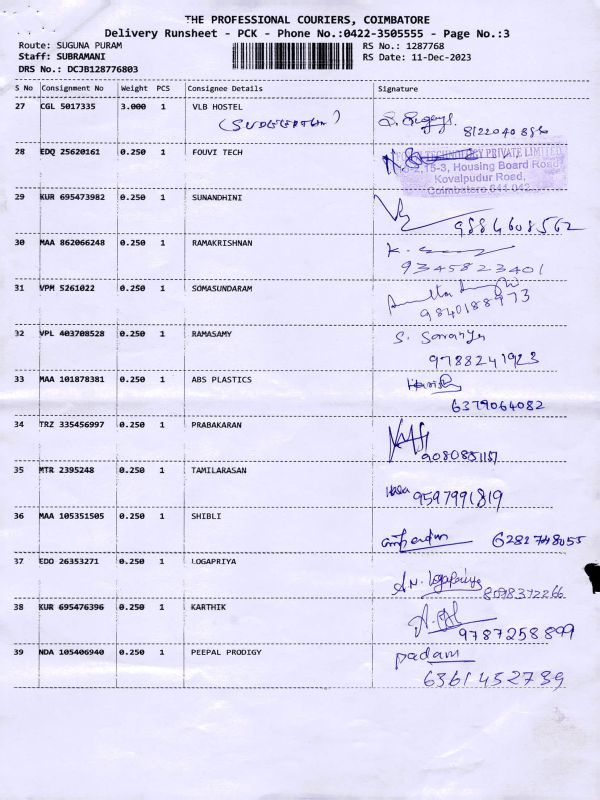 THE PROFESSIONAL COURIERS, COIMBATORE
Delivery Runsheet - PCK - Phone No.:0422-3505555 - Page No.:3
Route: SUGUNA PURAM RS No.: 1287768
Staff: SUBRAMANI RS Date: 11-Dec-2023
DRS No.: DCJB128776803
S No Consignment No Weight PCS Consignee Details Signature
27 CGL 5017335 3.000 1 VLB HOSTEL
28 EDQ 25620161 0.250 1 FOUVI TECH
TECHNOLOGY PRIVATE LIMITED
15-3, Housing Board Road
Kovaipudur Road,
Coimbatore 641 042
29 KUR 695473982 0.250 1 SUNANDHINI
9884608562
30 MAA 862066248 0.250 1 RAMAKRISHNAN
9345823401
31 VPM 5261022 0.250 1 SOMASUNDARAM
9840188973
32 VPL 403708528 0.250 1 RAMASAMY
S. Saranya
9788241923
33 MAA 101878381 0.250 1 ABS PLASTICS
Harish
6379064082
34 TRZ 335456997 0.250 1 PRABAKARAN
35 MTR 2395248 0.250 1 TAMILARASAN
9597991819
36 MAA 105351505 0.250 1 SHIBLI
6281748055
37 EDO 26353271 0.250 1 LOGAPRIYA
A.N. Logapriya
8098372266
38 KUR 695476396 0.250 1 KARTHIK
9787258899
39 NDA 105406940 0.250 1 PEEPAL PRODIGY
padam
6361452739